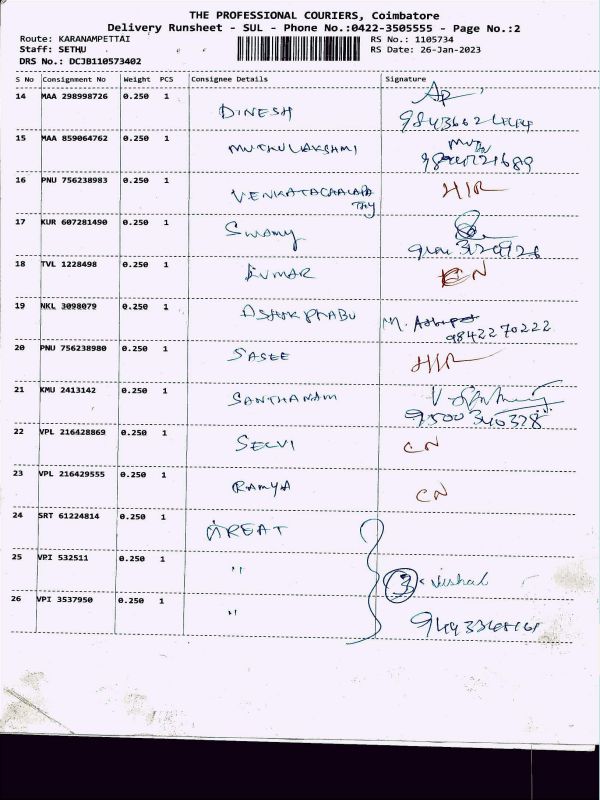 THE PROFESSIONAL COURIERS, Coimbatore
Delivery Runsheet - SUL - Phone No.:0422-3505555 - Page No.:2
Route: KARANAMPETTAI RS No.: 1105734
Staff: SETHU RS Date: 26-Jan-2023
DRS No.: DCJB110573402
S No Consignment No Weight PCS Consignee Details Signature
14 MAA 298998726 0.250 1 DINESH
15 MAA 859064762 0.250 1 MUTHULAKSHMI
16 PNU 756238983 0.250 1 H/R
17 KUR 607281490 0.250 1 Swamy
18 TVL 1228498 0.250 1 KUMAR CN
19 NKL 3098079 0.250 1 ASHOKPRABU M.
9842270222
20 PNU 756238980 0.250 1 SASEE H/R
21 KMU 2413142 0.250 1 SANTHANAM
9500340378
22 VPL 216428869 0.250 1 SELVI CN
23 VPL 216429555 0.250 1 RAMYA CN
24 SRT 61224814 0.250 1 GREAT
25 VPI 532511 0.250 1 " 3 Vishal
26 VPI 3537950 0.250 1 "